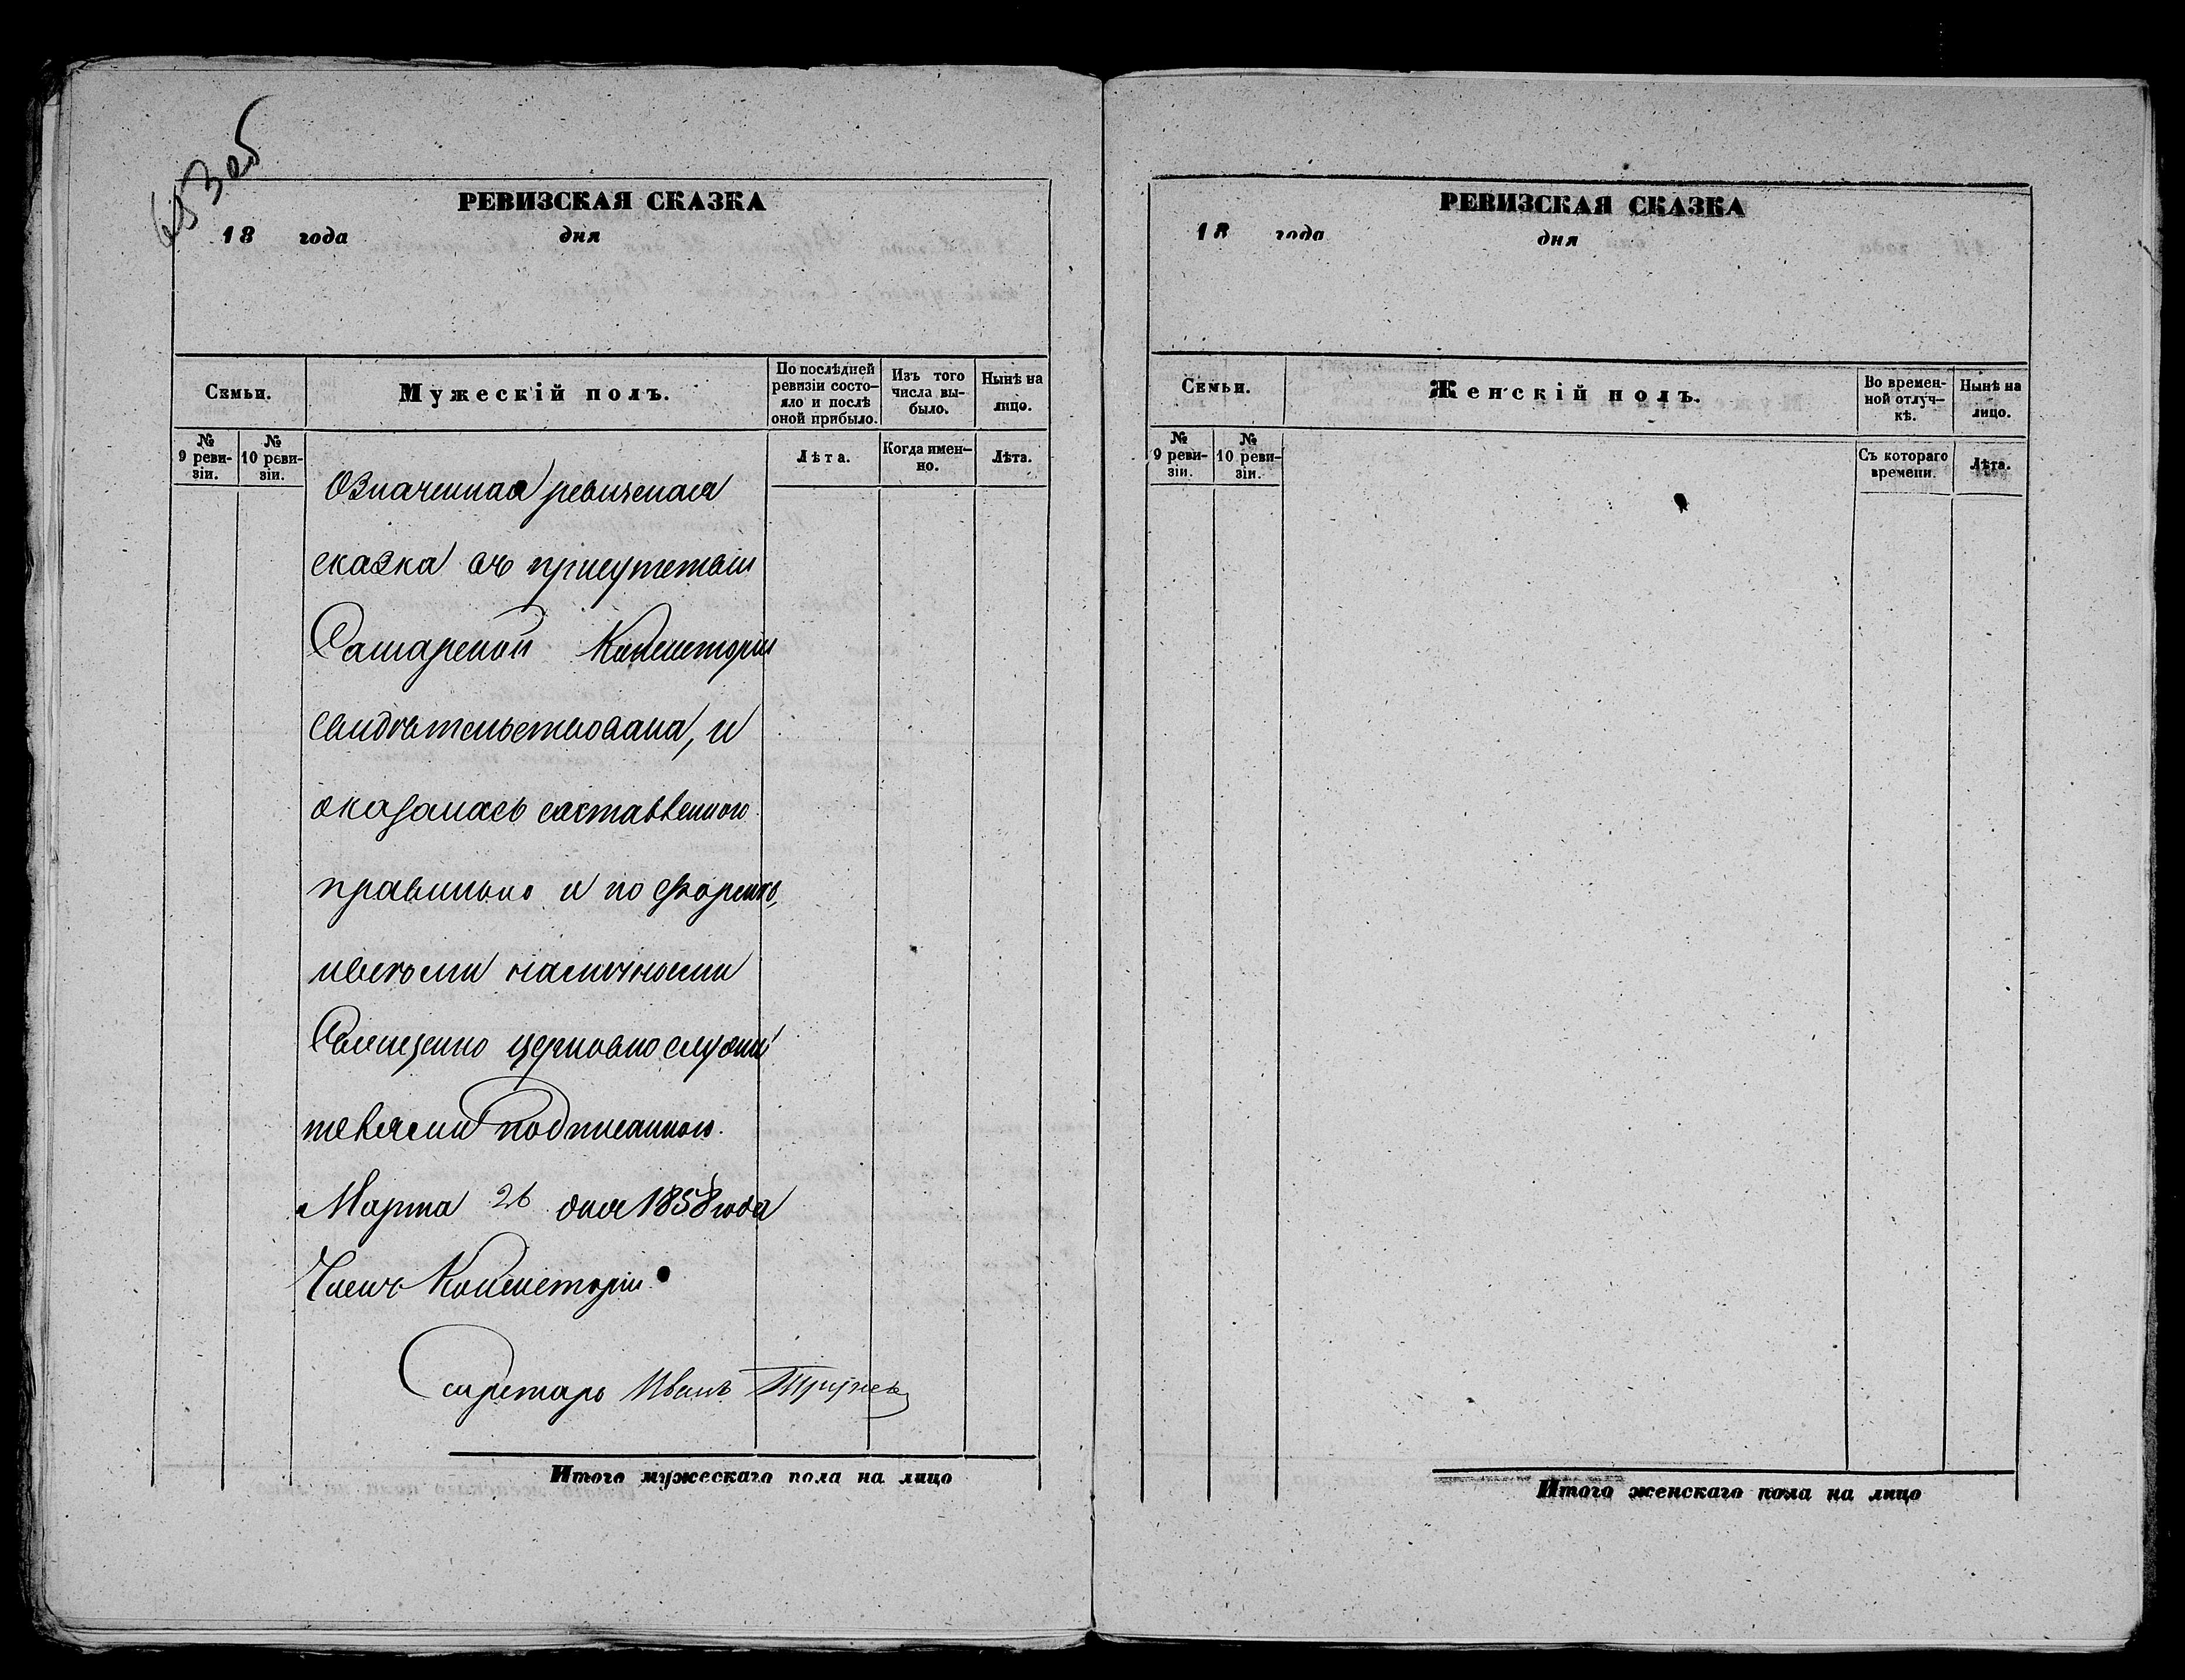 653 об
РЕВИЗСКАЯ СКАЗКА
18 года дня
Семьи.
Мужескій полъ.
По послѣдней
ревизіи состо-
яло и послѣ
оной прибыло.
Изъ того
числа вы-
было.
Нынѣ на
лицо.
№
9 реви-
зіи.
№
10 реви-
зіи.
Лѣта.
Когда имен-
но.
Лѣта.
Означенная ревизская
сказка въ присутствіи
Самарской Консисторіи
свидѣтельствована, и
оказалась составленною
правильно и по формѣ,
и всѣми наличными
Священно церковно служи
телями подписанною.
Марта 26 дня 1858 года
Членъ Консисторіи
Секретарь Иванъ
Итого мужескаго пола на лицо
РЕВИЗСКАЯ СКАЗКА
18 года дня
Семьи.
Женскій полъ.
Во времен-
ной отлуч-
кѣ.
Нынѣ на
лицо.
№
9 реви-
зіи.
№
10 реви-
зіи.
Съ котораго
времени.
Лѣта.
Итого женскаго пола на лицо